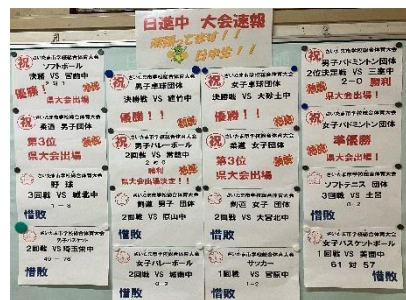 日進中 大会速報
頑張ってます!!
日中生!!
祝 さいたま市学校総合体育大会
ソフトボール
決勝 VS 宮前中
優勝!
県大会出場
祝 さいたま市学校総合体育大会
柔道 男子団体
第3位
県大会出場
さいたま市学校総合体育大会
野球
3回戦 VS 城北中
1-8
惜敗
さいたま市学校総合体育大会
男子バスケット
2回戦 VS 埼玉栄中
49-76
惜敗
祝 さいたま市学校総合体育大会
男子卓球団体
決勝戦 VS 植竹中
優勝!!
祝 さいたま市学校総合体育大会
男子バレーボール
2回戦 VS 常盤中
2-0
勝利
県大会出場決定!!
さいたま市学校総合体育大会
剣道 男子 団体
2回戦 VS 原山中
惜敗
さいたま市学校総合体育大会
女子バレーボール
2回戦 VS 城南中
0-2
惜敗
祝 さいたま市学校総合体育大会
女子卓球団体
決勝戦 VS 大砂土中
優勝!!
祝 さいたま市学校総合体育大会
柔道 女子団体
第3位
県大会出場
さいたま市学校総合体育大会
剣道 女子 団体
2回戦 VS 大宮北中
惜敗
さいたま市学校総合体育大会
サッカー
1回戦 VS 宮原中
1-2
惜敗
祝 さいたま市学校総合体育大会
男子バドミントン団体
2位決定戦 VS 三室中
2-0 勝利
県大会出場!
祝 さいたま市学校総合体育大会
女子バドミントン団体
準優勝
県大会出場!
さいたま市学校総合体育大会
ソフトテニス 団体
3回戦 VS 土呂
0-2
惜敗
さいたま市学校総合体育大会
女子バスケットボール
1回戦 VS 美園中
61 対 57
惜敗